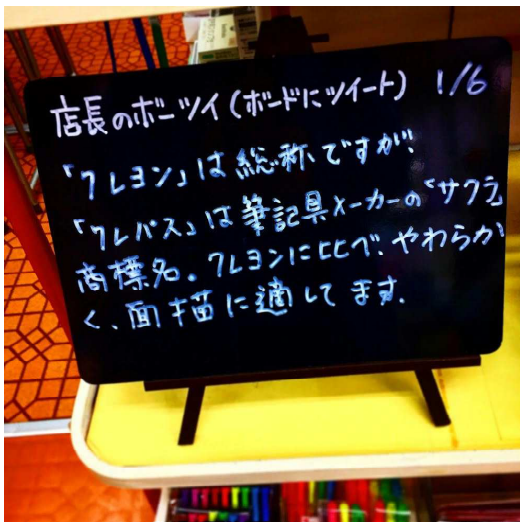 店長のボーツイ(ボードにツイート) 1/6
「クレヨン」は総称ですが、
「クレパス」は筆記具メーカーの“サクラ”
商標名。クレヨンに比べ、やわらか
く、面描に適してます。